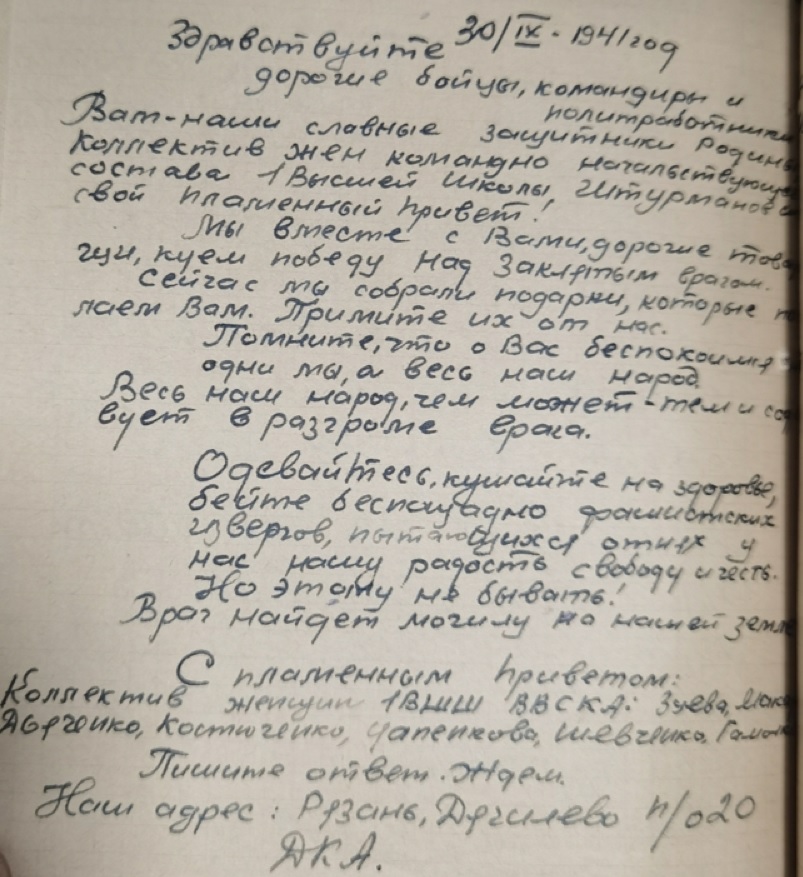 Здравствуйте 30/IX-1941 год
дорогие бойцы, командиры и
политработники
Вам-наши славные защитники Родины
Коллектив жен командно начальствующе
состава 1 Высшей Школы Штурманов
свой пламенный привет!
Мы вместе с Вами, дорогие това
щи, куем победу над заклятым врагом.
Сейчас мы собрали подарки, которые п
лаем Вам. Примите их от нас.
Помните, что о Вас беспокоимся
одни мы, а весь наш народ.
Весь наш народ, чем может-тем и со
вует в разгроме врага.
Одевайтесь, кушайте на здоровье,
бейте беспощадно фашистских
извергов, пытающихся отнять у
нас нашу радость свободу и честь.
Но этому не бывать!
Враг найдет могилу на нашей земле
С пламенным приветом:
Коллектив женщин 1ВШШ ВВСКА: Зуева,
Дьяченко, Костюченко, Цапенкова, Шевченко,
Пишите ответ. Ждем.
Наш адрес: Рязань, Дягилево п/о20
ДКА.